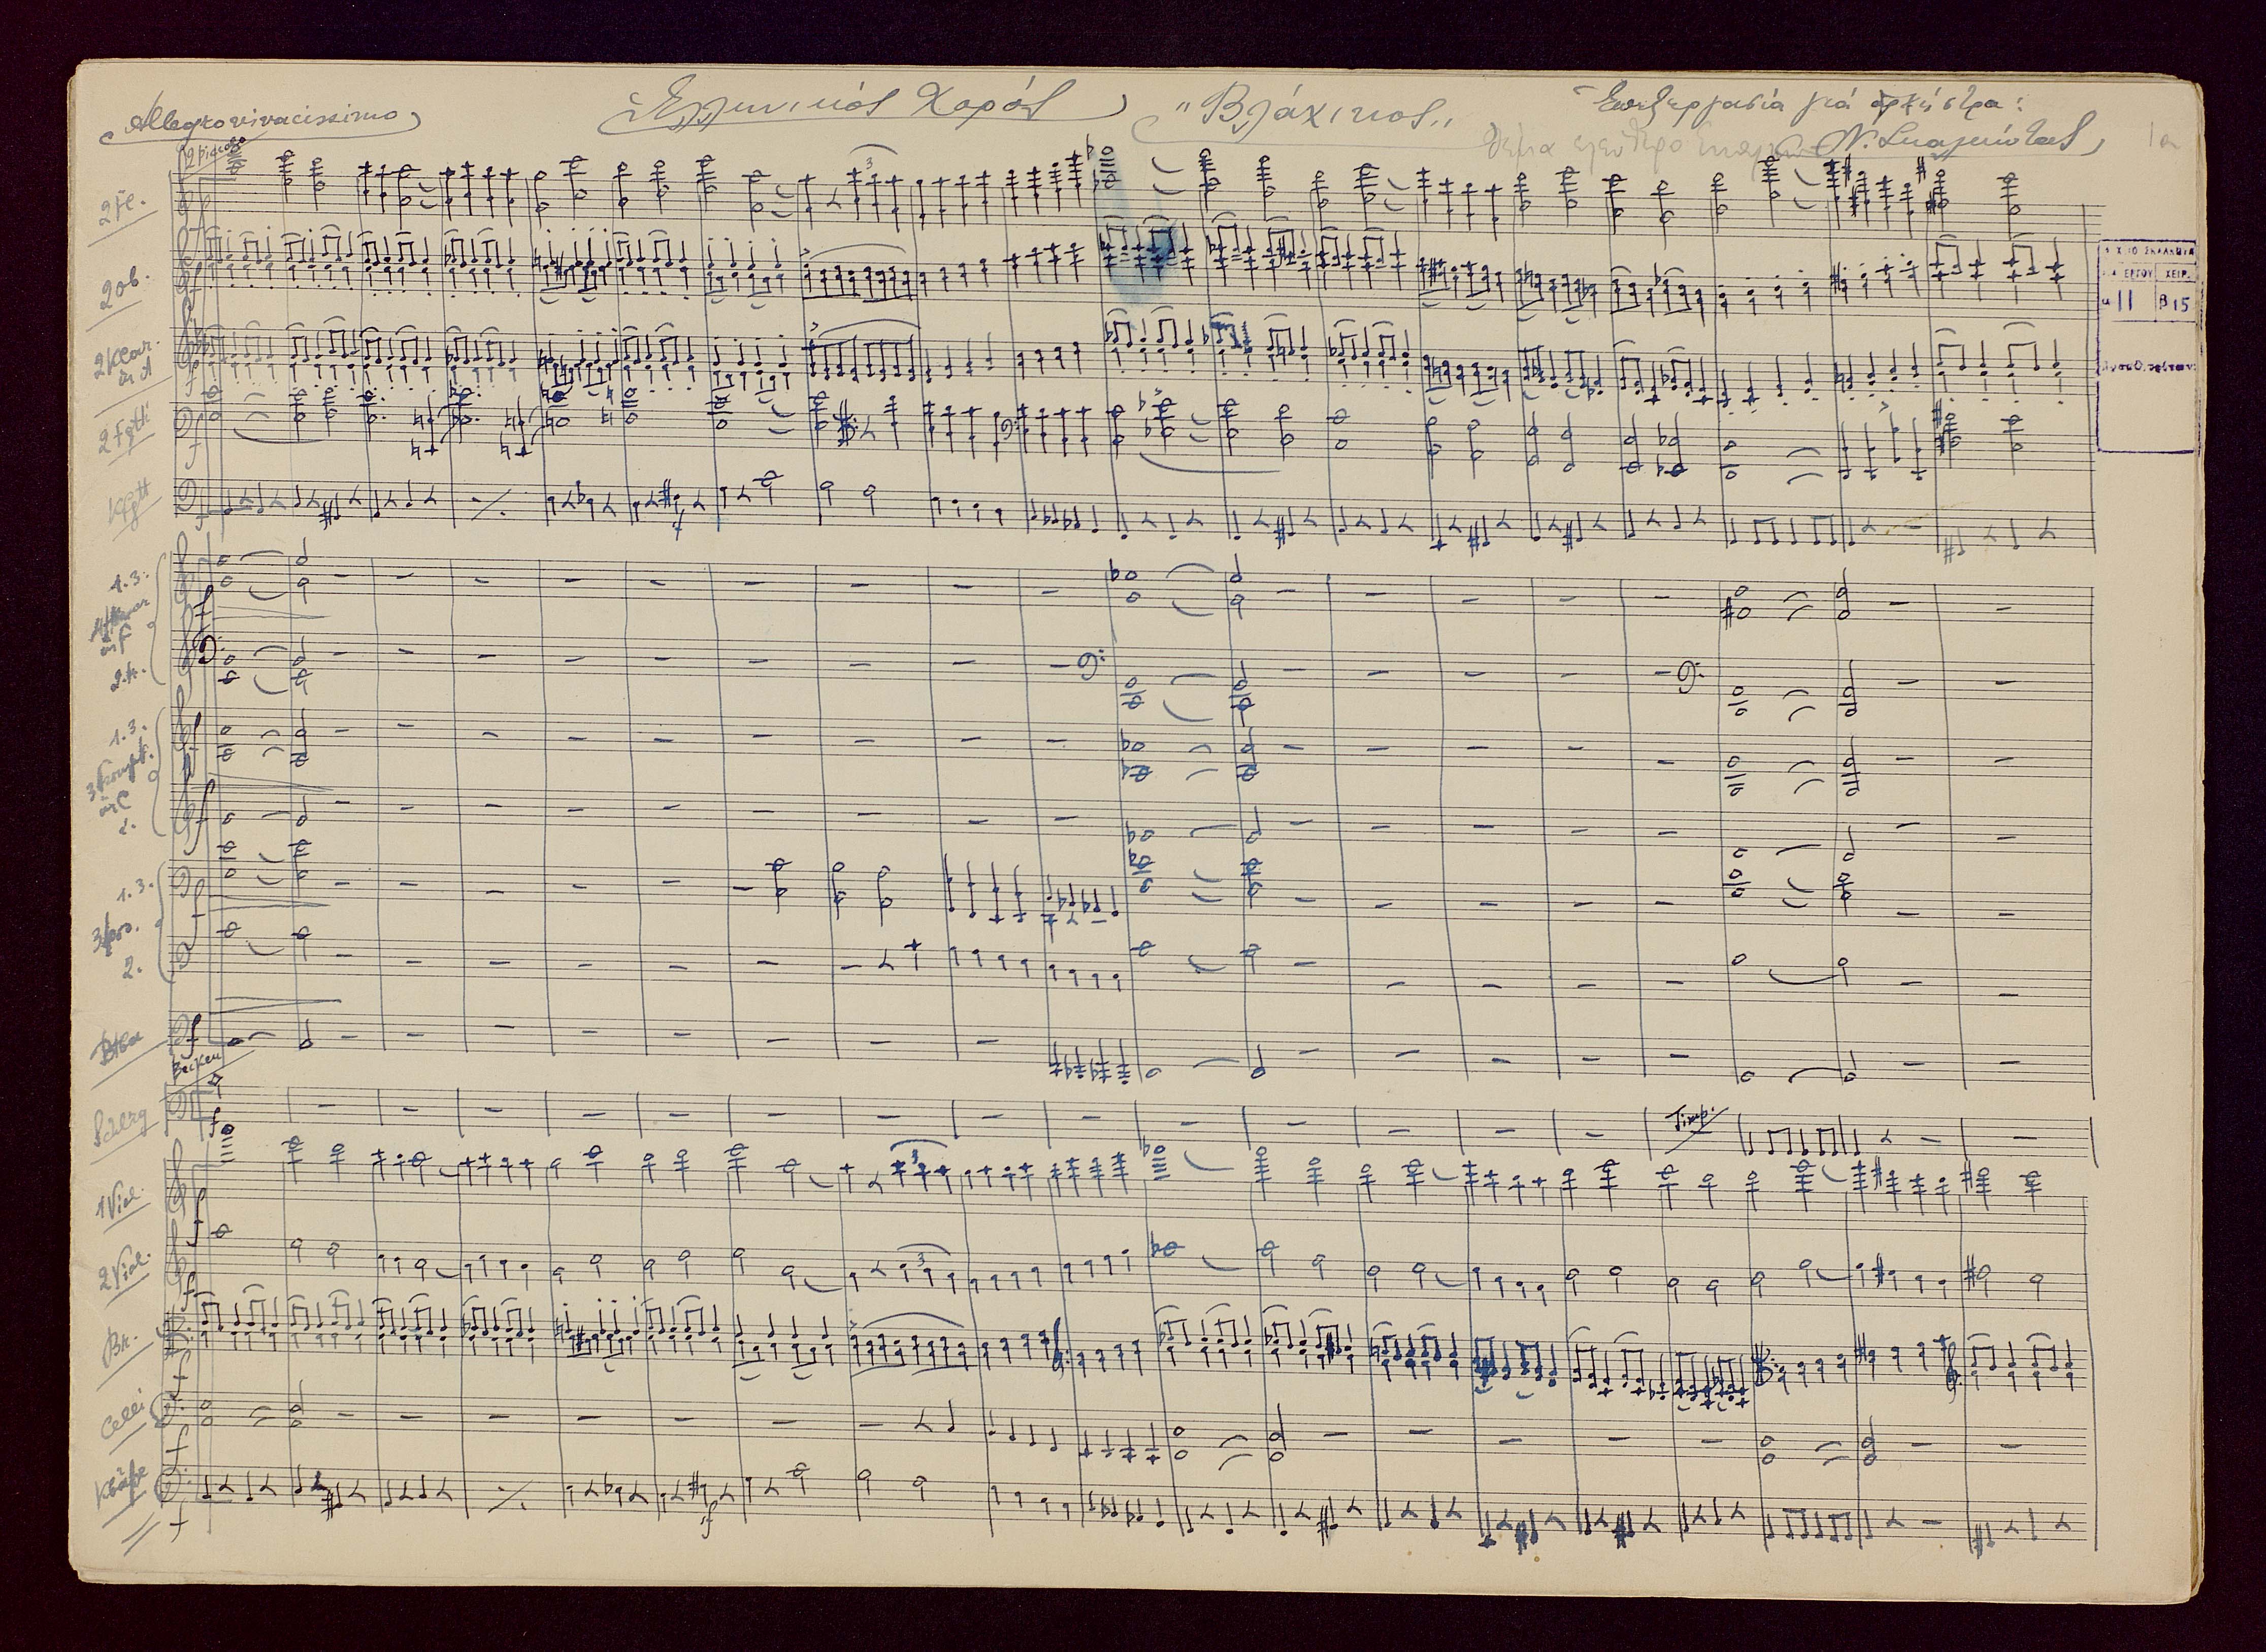 Allegro vivacissimo
Ἑλληνικός Χορός
„Βλάχικος„
Ἐπεξεργασία γιά ὀρχήστρα:
Ν. Σκαλκώτας
1a
2 piccolo
2 fl.
2 ob.
2 Klar.
in A
2 Fgtti
Kfgtt
ΕΡΓΟΥ ΧΕΙΡ.
α 11 β 15
1. 3.
in F
2. 4.
1. 3.
3 Trompt.
in C
2.
1. 3.
3 pos.
2.
Btba
Becken
Schlzg
Timp.
1 Viol.
2 Viol.
Br.
Celli
Kbäße